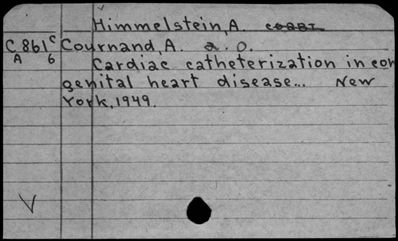 Himmelstein, A.
C 861 C Cournand, A. a. o.
A 6 Cardiac catheterization in con
genital heart disease... New
York, 1949.
V